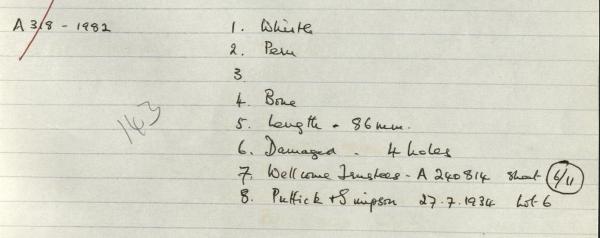 A 318 - 1982
1. Whistle
2. Peru
3
4. Bone
5. Length - 86mm.
6. Damaged - 4 holes
143
7. Wellcome Trustees - A 240814 Sheet 6/11
8. Puttick + Simpson 27.7.1934 Lot 6